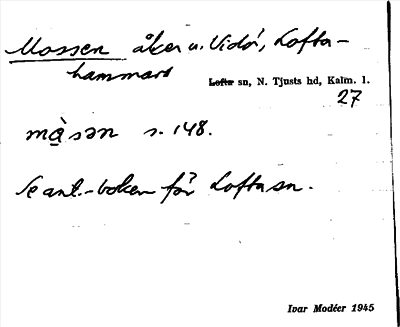 Mossen åker u. Vidö, Lofta-
hammars
Lofta sn, N. Tjusts hd, Kalm. l.
27
må̀sən s. 148.
Se ant.-boken för Lofta sn.
Ivar Modéer 1945